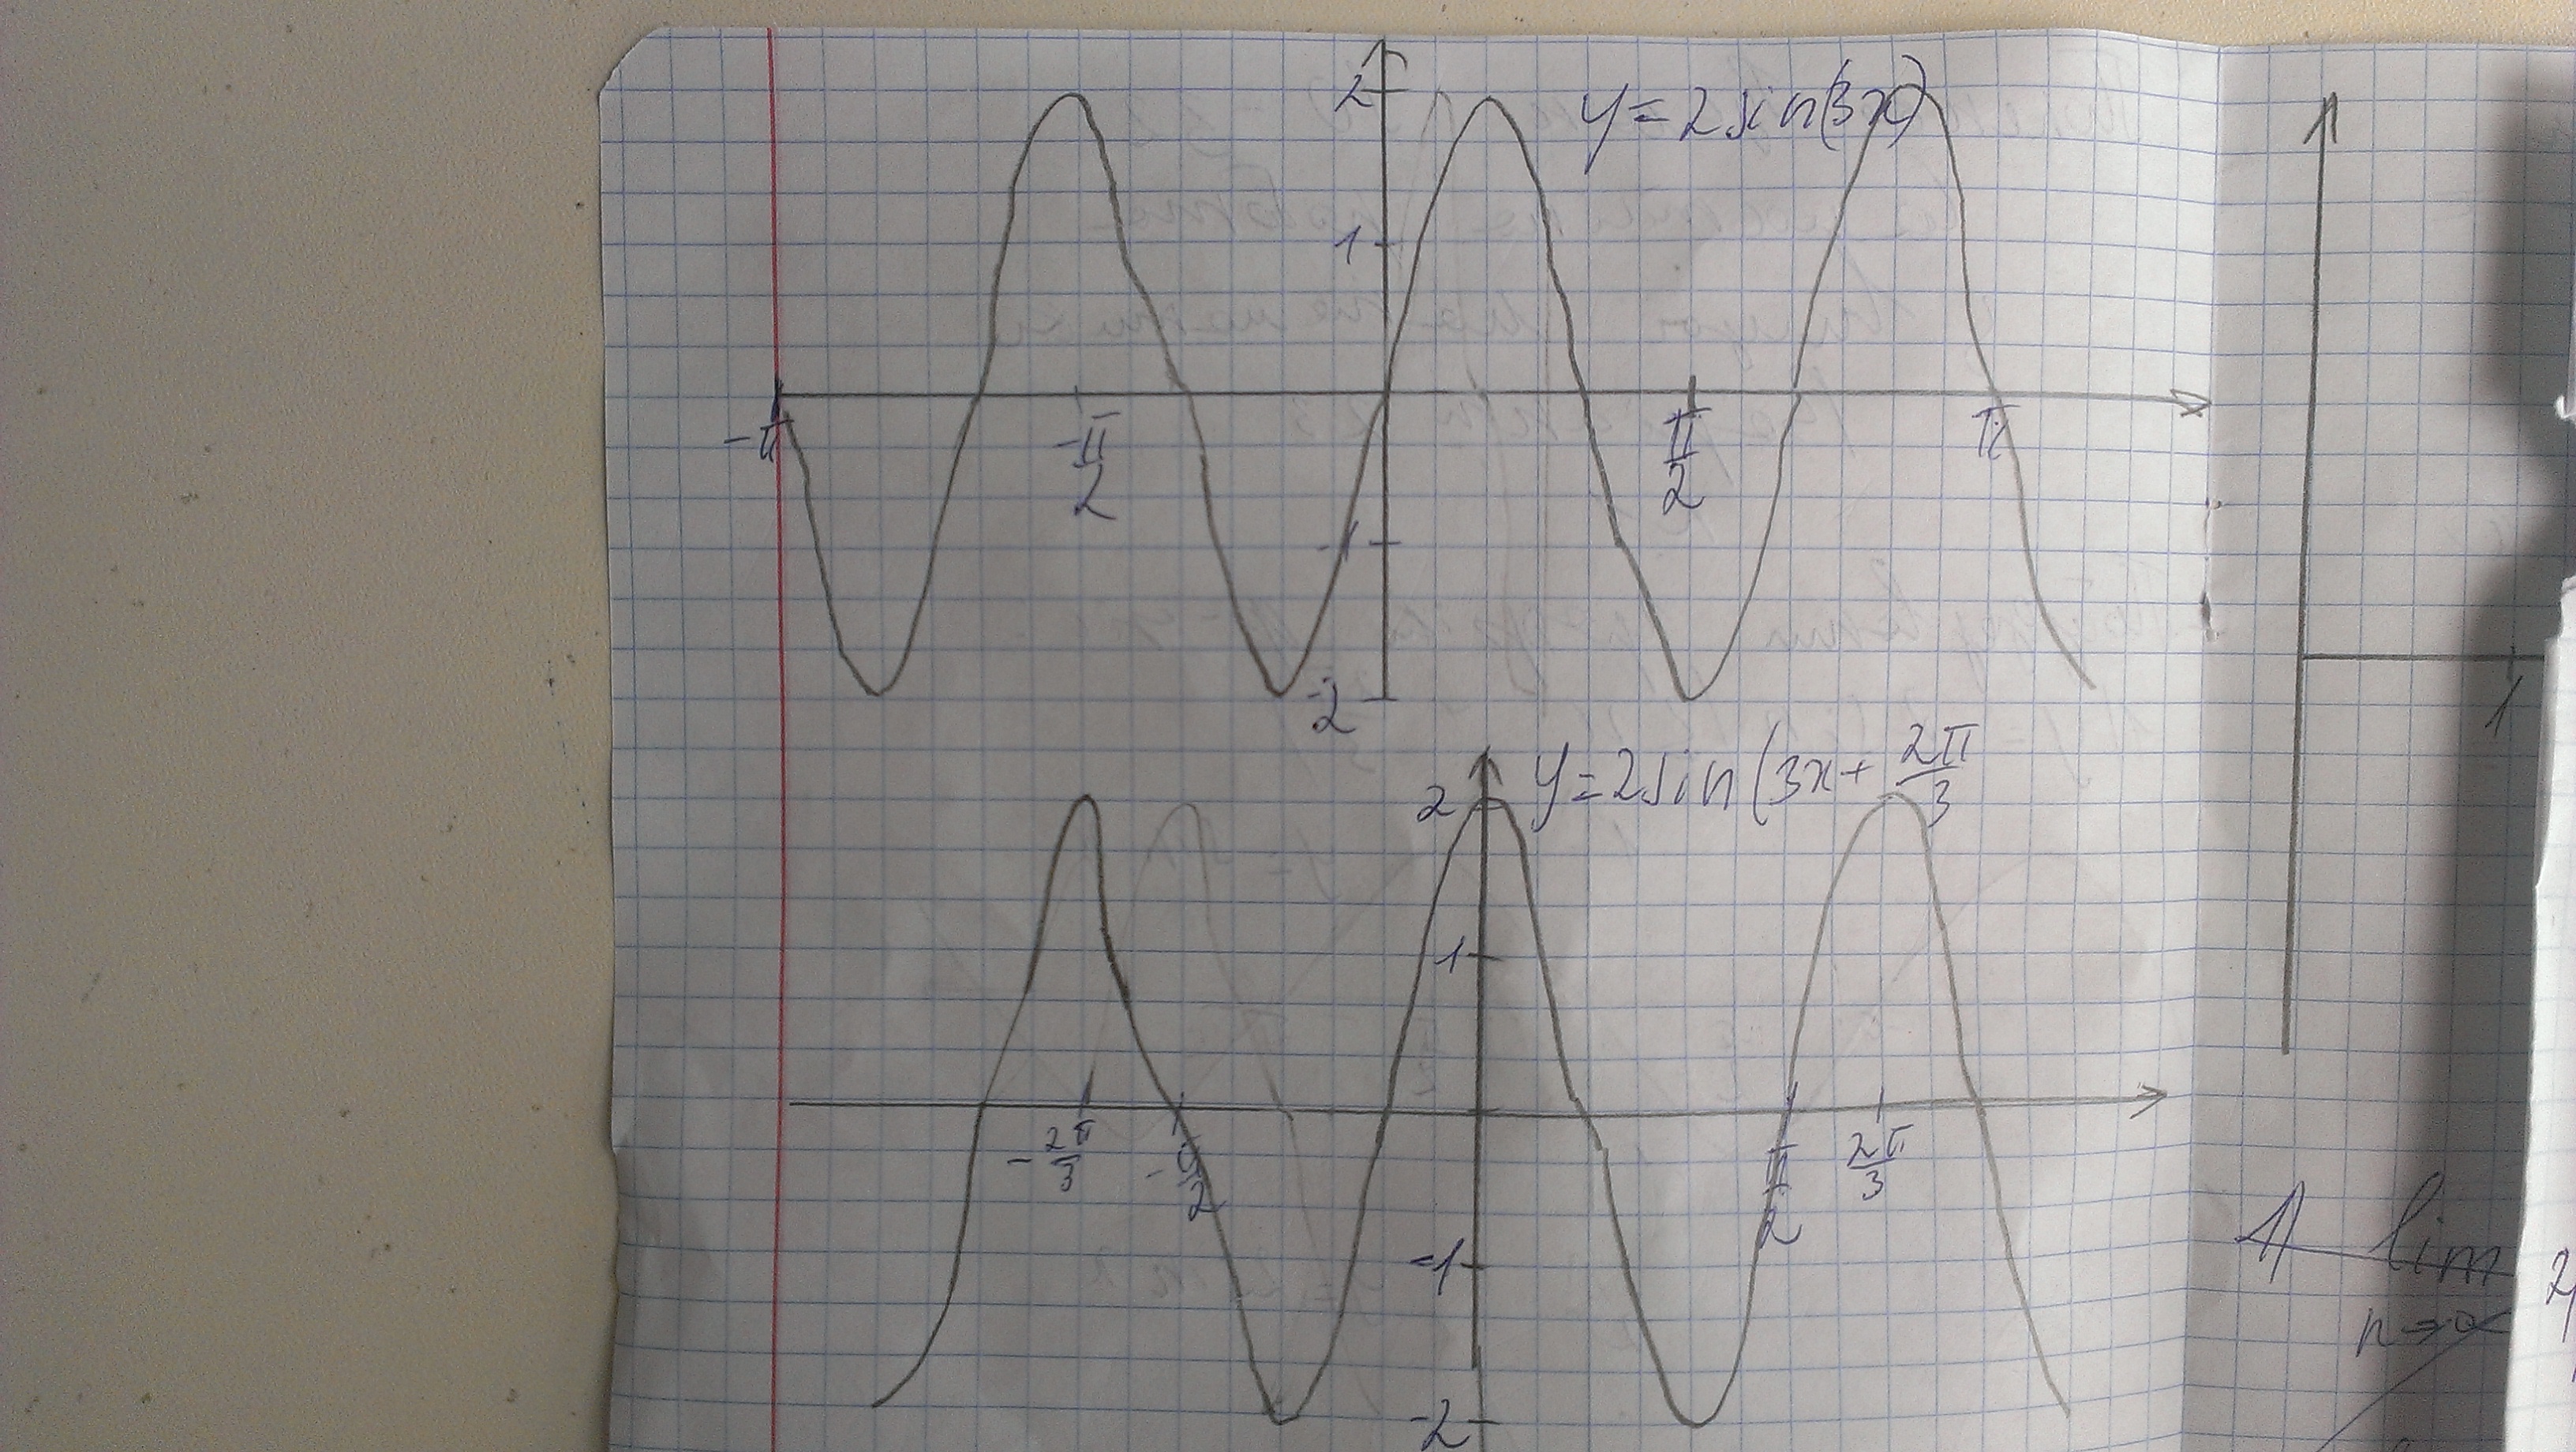 2
y = 2 sin(3x)
1
-π
-π/2
π/2
π
-1
-2
y = 2 sin(3x + 2π/3
2
1
-2π/3
-π/2
π/2
2π/3
-1
-2
1
1) lim
n→∞